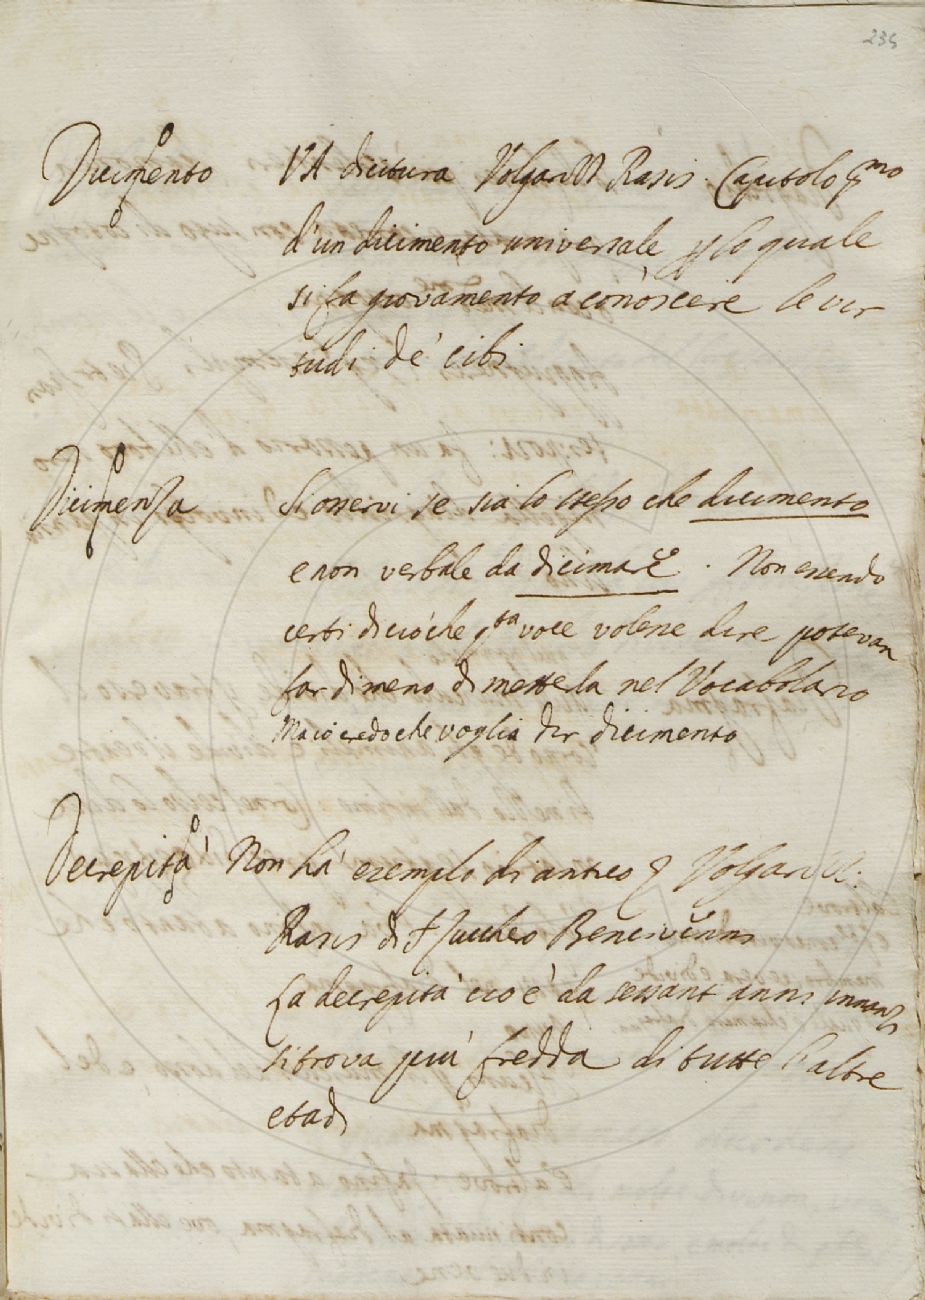 235
Dicimento VA dicitura Volgar Rasis. Capitolo pmo
d'un dicimento universale p lo quale
si fa giovamento a conoscere le ver
tudi de' cibi
Dicimenza Si osservi se sia lo stesso che dicimento
e non verbale da dicimare. Non essendo
certi di ciò che qta voce volesse dire potevan
far di meno di metterla nel Vocabolario
Ma io credo che voglia dir dicimento
Decrepità Non hà esempio di antico Volgar
Rasis di Zucchero Bencivenni
La decrepità cioè da sessant anni innanzi
si trova più fredda di tutte l'altre
etadi